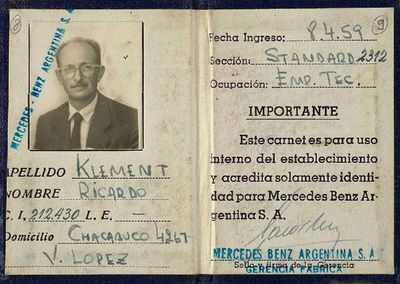 MERCEDES - BENZ ARGENTINA S. A.
APELLIDO KLEMENT
NOMBRE RICARDO
C. I. 212.430 L. E. —
Domicilio CHACABUCO 4267
V. LOPEZ
Fecha Ingreso: 8.4.59
Sección: STANDARD 2312
Ocupación: EMP. TEC.
IMPORTANTE
Este carnet es para uso
interno del establecimiento
y acredita solamente identi-
dad para Mercedes Benz Ar-
gentina S. A.
MERCEDES BENZ ARGENTINA S. A.
Sello y firma de la Gerencia
GERENCIA FABRICA